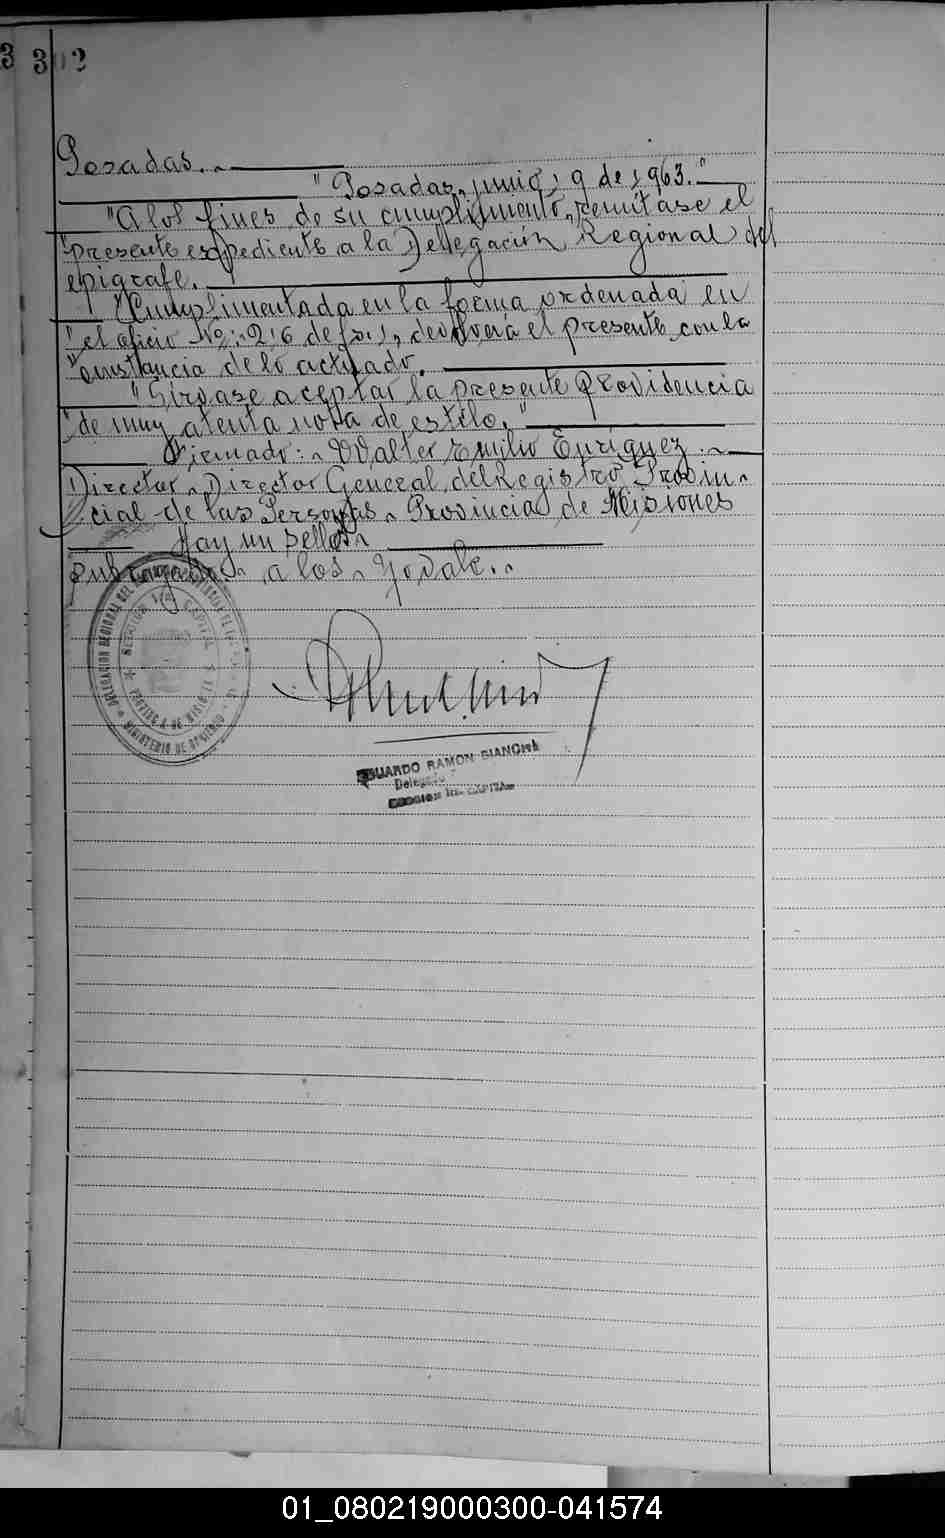 302
Posadas.-
"Posadas, junio 19 de 1963."
"A los fines de su cumplimiento, remitase el
"presente expediente a la Delegación Regional del
epigrafe.
"Cumplimentada en la forma ordenada en
"el oficio Nº: 216 de fs. 1, devolverá el presente con la
"constancia de lo actuado.
"Sirvase aceptar la presente Providencia
"de muy atenta nota de estilo."
Firmado:- Walter Emilio Enriquez.-
Director - Director General del Registro Provin-
cial de las Personas - Provincia de Misiones
Hay un Sello.-
a los - Vale.-
DELEGACION REGIONAL DEL
SECCION 1ra. CAPITAL
PROVINCIA DE MISIONES
MINISTERIO DE GOBIERNO
EDUARDO RAMON BIANCHI
Delegado
SECCION 1ra. CAPITAL
01_080219000300-041574